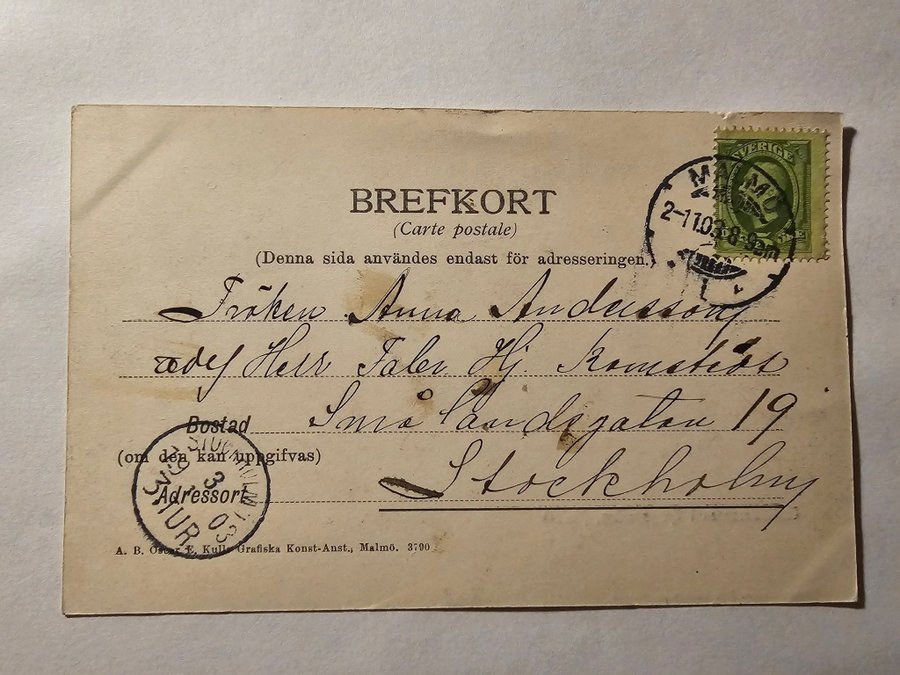 SVERIGE
MALMÖ
2-11.03 8-9 am
1
BREFKORT
(Carte postale)
(Denna sida användes endast för adresseringen.)
Fröken Anna Andersson
Herr Hj.
Bostad Smålandsgatan 19
(om den kan uppgifvas)
Adressort Stockholm
3
03
TUR
A. B. Oscar E. Kulls Grafiska Konst-Anst., Malmö. 3790